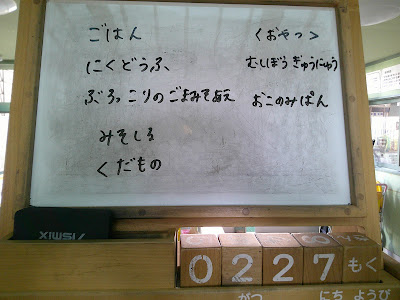 ごはん
にくどうふ、
ぶろっこりのごまみそあえ
みそしる
くだもの
〈おやつ〉
むしぼう ぎゅうにゅう
おこのみぱん
VISMIX
0227もく
がつ にち ようび